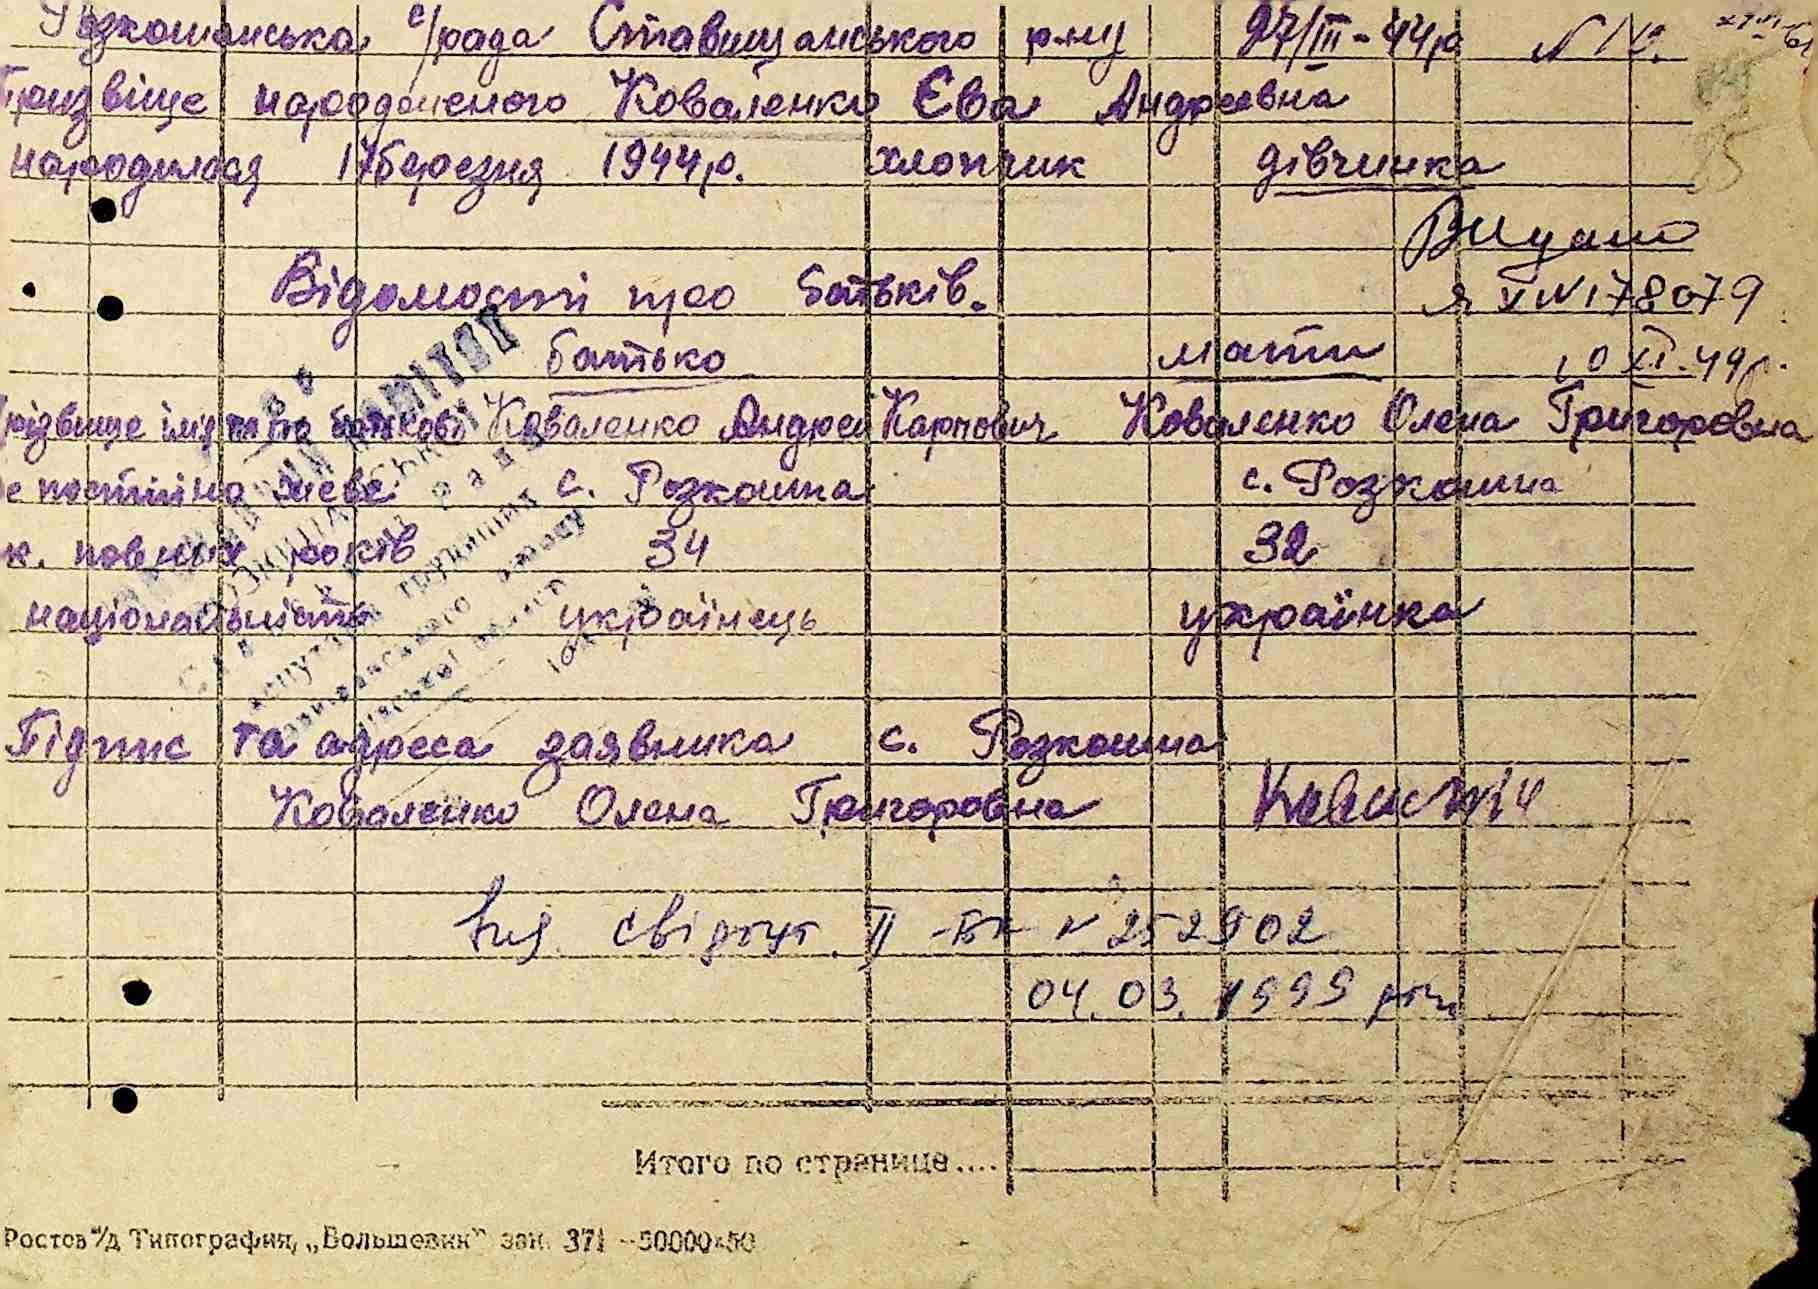 Розкошанська с/рада Ставищанського р-ну 27/III-44р N 12.
Прізвище народженого Коваленко Єва Андреєвна
народилася 17 березня 1944р. хлопчик дівчинка
Видано
Я V N 178079
Відомості про батьків.
батько мати 10 XI-44р.
Прізвище імя та по батькові Коваленко Андрей Карпович Коваленко Олена Григоровна
де постійно живе с. Розкошна с. Розкошна
к. повних років 34 32
національність українець українка
Підпис та адреса заявника с. Розкошна
Коваленко Олена Григоровна
Вид. свідоцт. II-БК N 252902
04.03.1999 року
Итого по странице....
Ростов н/д Типография, „Большевик" зак. 371 —50000×50